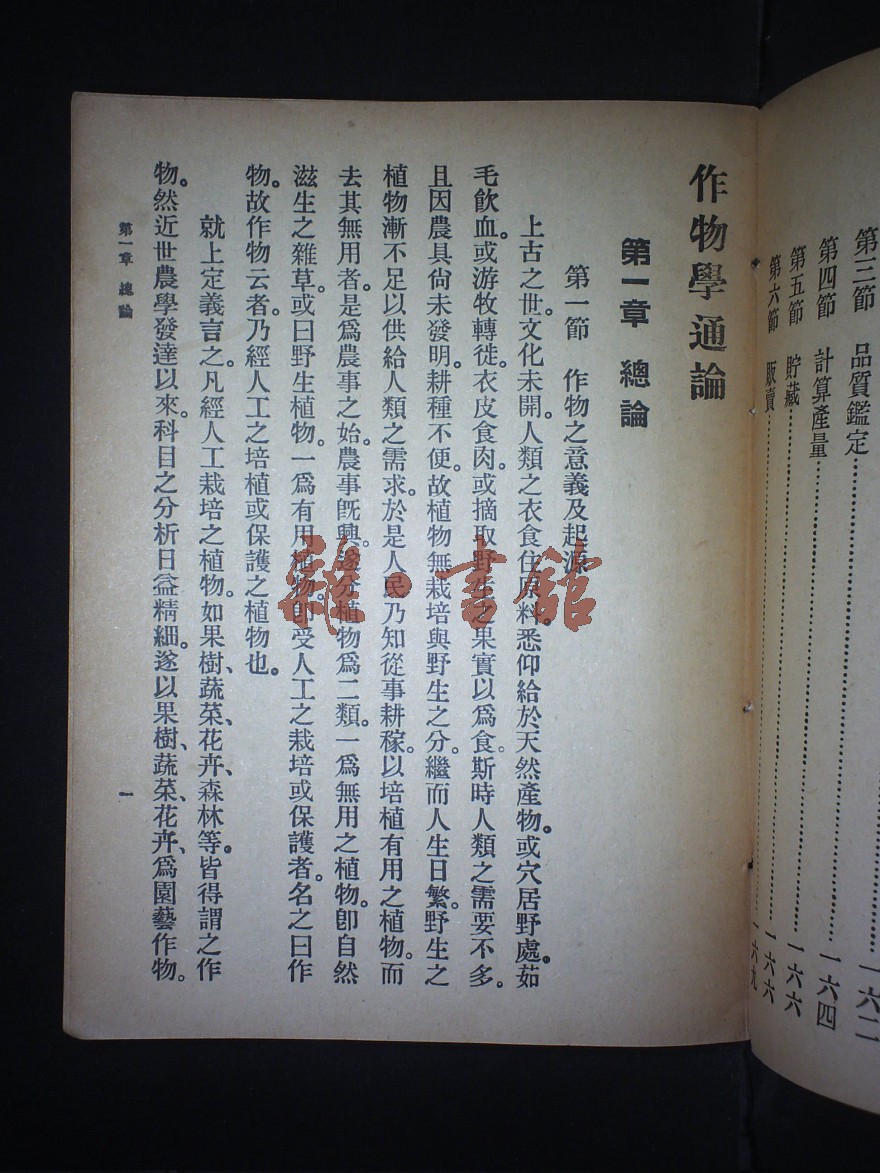 第三節　品質鑑定……一六二
第四節　計算產量……一六四
第五節　貯藏……一六六
第六節　販賣……一六六
一六九
作物學通論
第一章　總論
第一節　作物之意義及起源
上古之世。文化未開。人類之衣食住原料。悉仰給於天然產物。或穴居野處。茹
毛飲血。或游牧轉徙。衣皮食肉。或摘取野生之果實以爲食。斯時人類之需要不多。
且因農具尙未發明。耕種不便。故植物無栽培與野生之分。繼而人生日繁。野生之
植物漸不足以供給人類之需求。於是人民乃知從事耕稼。以培植有用之植物。而
去其無用者。是爲農事之始。農事旣興。遂分植物爲二類。一爲無用之植物。卽自然
滋生之雜草。或曰野生植物。一爲有用植物。卽受人工之栽培或保護者。名之曰作
物。故作物云者。乃經人工之培植或保護之植物也。
就上定義言之。凡經人工栽培之植物。如果樹、蔬菜、花卉、森林等。皆得謂之作
物。然近世農學發達以來。科目之分析日益精細。遂以果樹、蔬菜、花卉、爲園藝作物。
第一章　總論
一
雜·書館